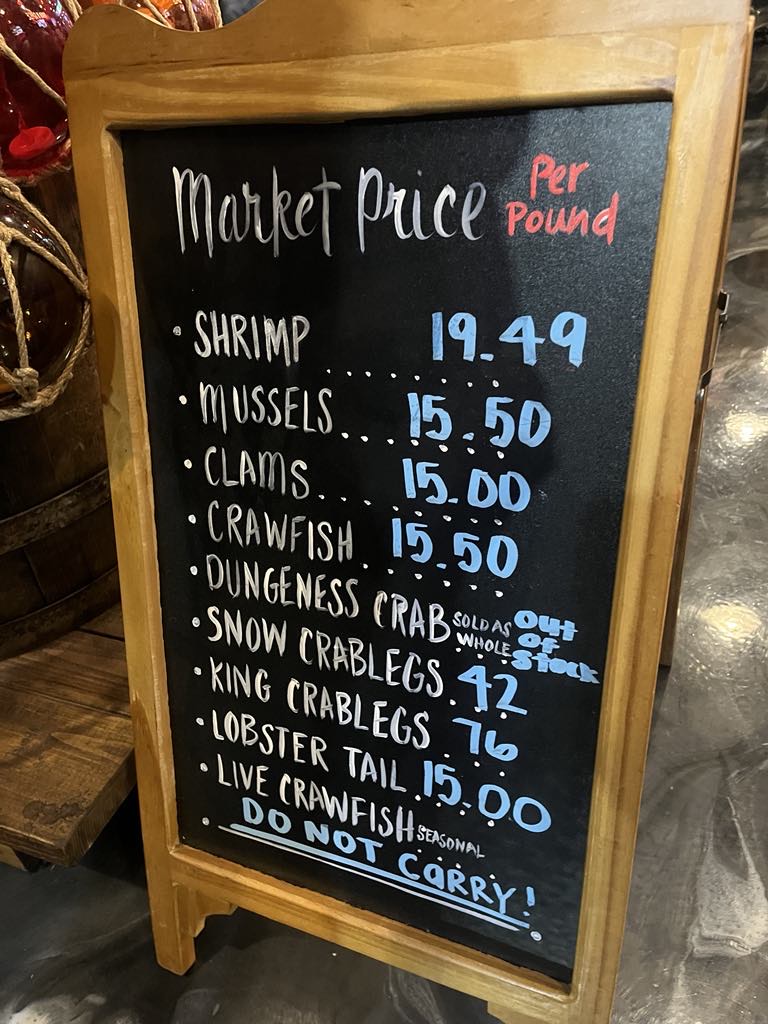 Market Price Per Pound
• SHRIMP 19.49
• MUSSELS 15.50
• CLAMS 15.00
• CRAWFISH 15.50
• DUNGENESS CRAB SOLD AS WHOLE OUT OF STOCK
• SNOW CRABLEGS 42
• KING CRABLEGS 76
• LOBSTER TAIL 15.00
• LIVE CRAWFISH SEASONAL
DO NOT CARRY!